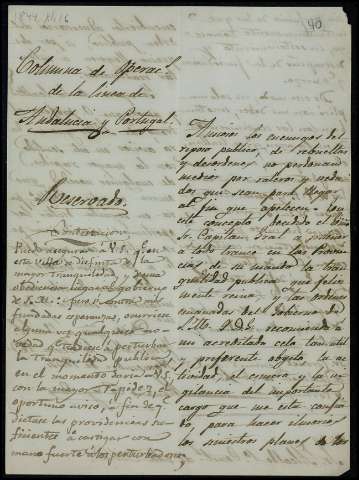 1844.XI.16
40
Columna de Operacs.
de la linea de
Andalucía y Portugal.
Reservado.
Contestacion
Puedo asegurar á V.S. q. en
esta Villa se disfruta de la
mayor tranquilidad, y suma
obediencia al gobierno
de S.M.: si contra mis
fundadas esperanzas, ocurriese
alguna ú qualquier no-
vedad q. tendiese á perturbar
la tranquilidad publica
en el momento daria á V.S.
con la mayor rapidez, el
oportuno aviso, a fin de q.
dictase las providencias
á castigar con
mano fuerte á los perturbadores,
Ansiosos los enemigos del
reposo publico, de rebueltas
y desordenes, no perdonan
medios por rateros y
dos que sean para llegar
al fin que apetecen; en
este concepto decidido el
Sr. Capitan Gral. á
á todo trance en las Provincias
de su mando la tran-
quilidad publica que feliz-
mente reina, y las ordenes
del Gobierno de
S.M. recomiendo á
su acreditado celo tan util
y preferente objeto, la ac-
tividad, el esmero y la vi-
gilancia del importante
cargo que me está confia-
do, para hacer ilusorios
los siniestros planes de los